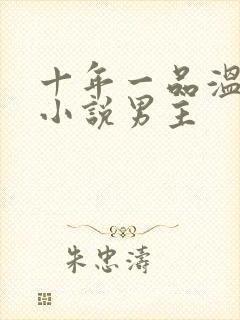 十年一品温
小説男主
朱忠濤